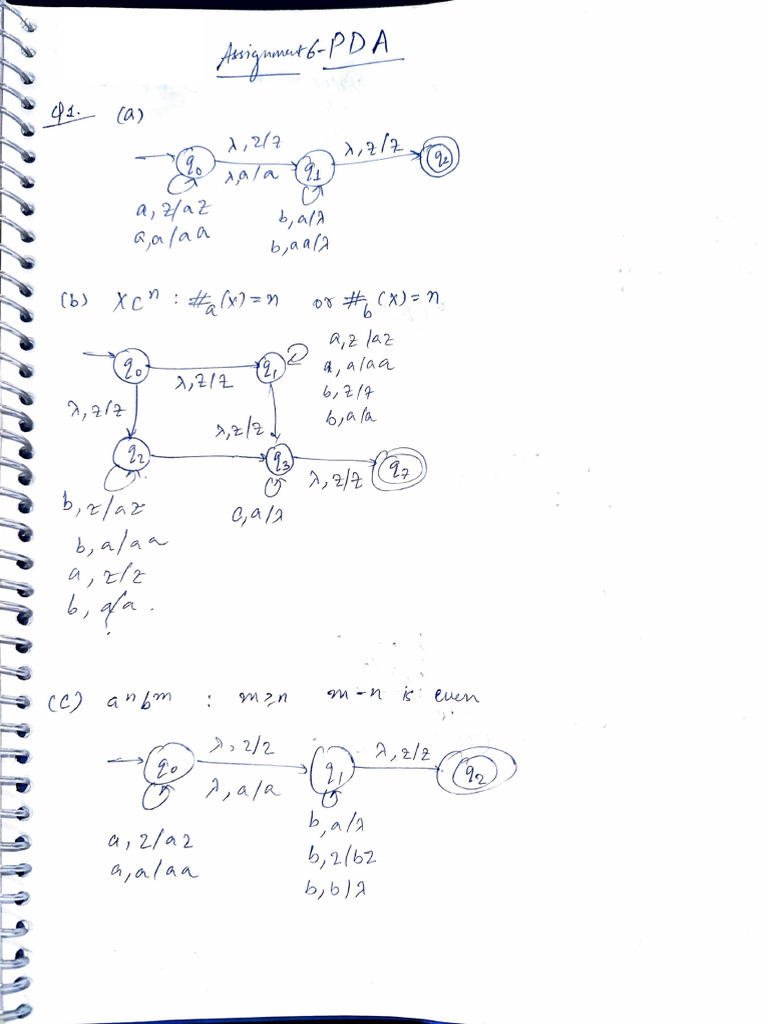 Assignment 6 - PDA
Q1. (a)
λ, z/z
λ, a/a
λ, z/z
q0
q1
q2
a, z/az
a, a/aa
b, a/λ
b, aa/λ
(b) X C^n : #a(x) = n or #b(x) = n
a, z/az
a, a/aa
b, z/z
b, a/a
q0
λ, z/z
q1
λ, z/z
λ, z/z
q2
q3
λ, z/z
b, z/az
b, a/aa
a, z/z
b, a/a.
c, a/λ
(C) a^n b^m : m ≥ n m - n is even
λ, z/z
λ, a/a
λ, z/z
q0
q1
q2
a, z/az
a, a/aa
b, a/λ
b, z/bz
b, b/λ